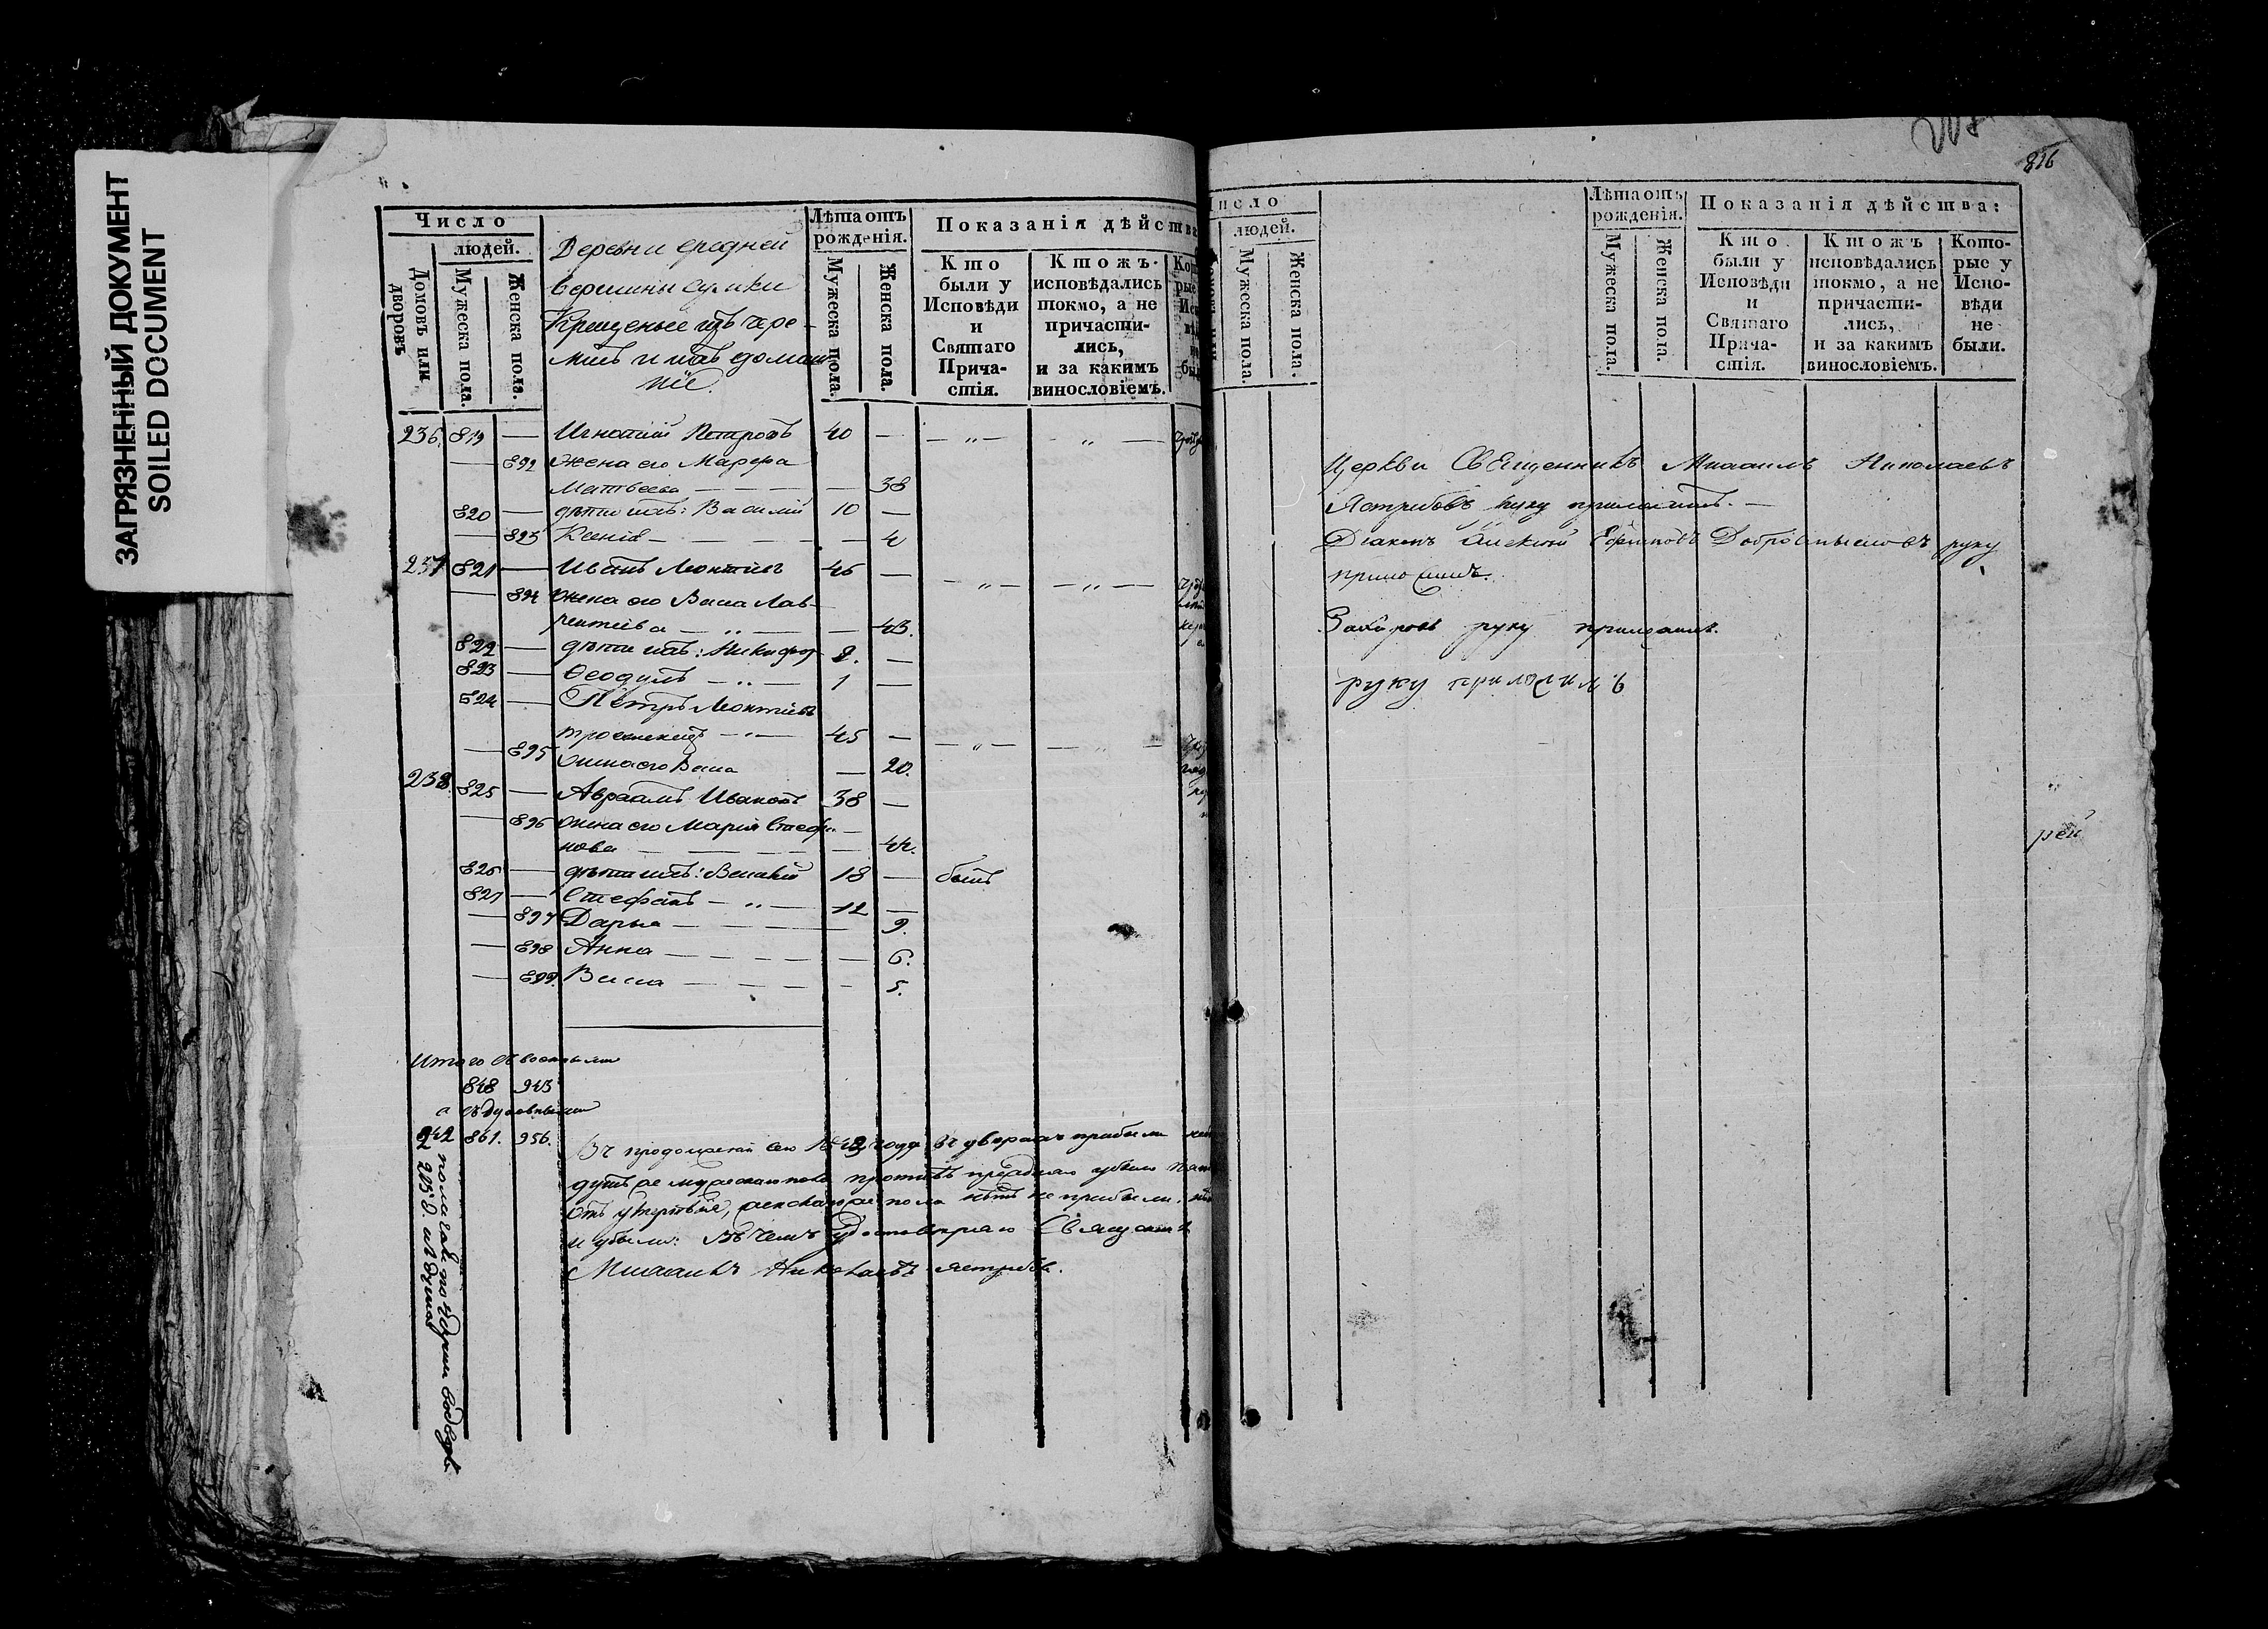 ЗАГРЯЗНЕННЫЙ ДОКУМЕНТ
SOILED DOCUMENT
Число
людей.
Домовъ или дворовъ
Мужеска пола.
Женска пола.
Деревни средней
вершины сумки
Крещеные изъ чере-
мисъ и ихъ домаш-
ніе.
Лѣта отъ рожденія.
Мужеска пола.
Женска пола.
Показанія дѣйства
Кто были у Исповѣди и Святаго Причастія.
Ктожъ исповѣдались токмо, а не причастились, и за какимъ винословіемъ.
236. 819 — Игнатий Петровъ 40 — — „ — „ —
— 892 жена его Марфа
Матвеева — — 38
820 — дѣти ихъ: Василий 10 —
— 893 Ксенія — — 4
237 821 — Иванъ Леонтьевъ 46 — — „ — — „ —
— 894 жена его Васса Лав-
рентіева — „ — — 43.
822 — дѣти ихъ: Никифор 2. —
823 — Ѳеодулъ — „ — 1 —
824 — Петръ Леонтьевъ
— „ — 45 — — „ — — „ —
— 895 жена его Васса — 20.
238. 825 — Авраамъ Ивановъ 38 —
— 896 жена его Мария Стефа-
нова — — 44.
826 — дѣти ихъ: 18 — былъ
827 — Стефанъ — „ — 12 —
— 897 Дарья — — 9.
— 898 Анна — — 6.
— 899 Васса — — 5.
Итого съ военными
848 943
а съ духовными
242 861. 956.
Въ сего 1842 года въ дворахъ прибыли
душъ мужеска пола противъ убыло
отъ женска пола не прибыли,
и убыли: Въ чемъ удостоверяю Священникъ
Михаилъ Николаевъ Ястребовъ.
816
Число
людей.
Мужеска пола.
Женска пола.
Лѣта отъ рожденія.
Мужеска пола.
Женска пола.
Показанія дѣйства:
Кто были у Исповѣди и Святаго Причастія.
Ктожъ исповѣдались токмо, а не причастились, и за какимъ винословіемъ.
Которые у Исповѣди не были.
Церкви Священникъ Михаилъ Николаевъ
Ястребовъ руку приложилъ. —
Діаконъ Алексей Ефимовъ Добросмысловъ руку
приложилъ.
Захаровъ руку приложилъ.
руку приложилъ
рей